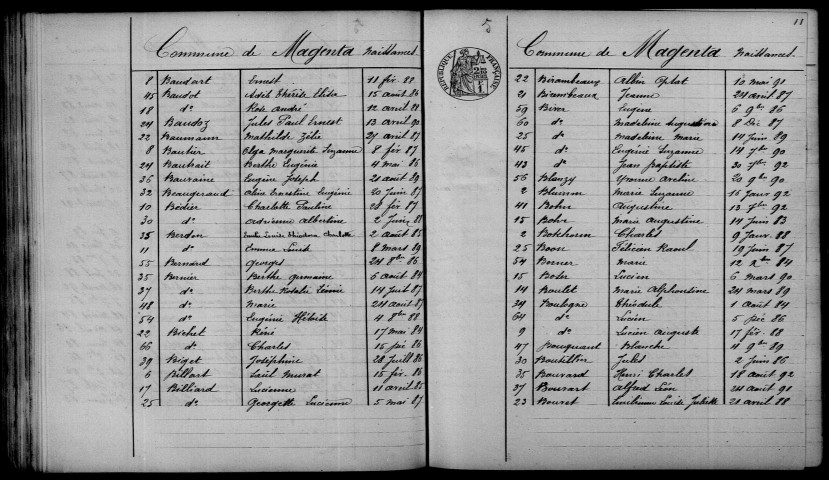 5
Commune de Magenta Naissances
8 Baudart Ernest 11 fév. 88
45 Baudot Adèle Thérèse Elida 15 août 86
18 do Rose André 12 avril 88
24 Baudoz Jules Paul Ernest 13 avril 90
22 Baumann Mathilde Zélie 21 avril 87
8 Bautier Olga Marguerite Suzanne 8 fév 87
24 Bauhait Berthe Eugénie 4 mai 86
36 Bauraine Eugène Joseph 21 août 89
32 Beaugeraud Aline Ernestine Eugénie 20 Juin 87
10 Bédier Charlotte Pauline 28 fév 87
30 do Adrienne Albertine 2 Juin 88
35 Berdon Emilie Louise Charlotte 2 août 85
11 do Emma Louise 8 mars 89
55 Bernard Georges 24 8bre 86
35 Bernier Berthe Germaine 6 août 84
37 do Berthe Rosalie Léonie 14 Juil 87
48 do Marie 24 août 87
54 do Eugénie 4 8bre 88
22 Bichet Réné 17 mai 84
66 do Charles 15 Déc 86
39 Biget Joséphine 28 Juill 86
6 Billart Saül Murat 15 fév. 86
17 Billiard Lucienne 11 avril 85
25 do Georgette Lucienne 5 mai 87
5
11
RÉPUBLIQUE FRANÇAISE
Commune de Magenta Naissances
22 Birambeaux Albin 10 mai 91
21 Birambeaux Jeanne 24 août 87
59 Biver Eugène 6 9bre 86
60 do Madeleine Augustine 8 Déc 87
25 do Madeleine Marie 14 Juin 89
45 do Eugénie Suzanne 14 7bre 90
43 do Jean Baptiste 30 7bre 92
56 Blanzy Yvonne 20 9bre 90
2 Blumon Marie Suzanne 16 Janv 92
41 Bohn Augustine 13 7bre 92
15 Bohn Marie Augustine 14 Juin 83
2 Charles 9 Janv 88
25 Boon Félicien Raoul 19 Juin 87
54 Borner Marie 12 Xbre 84
15 Lucien 6 mars 90
14 Boulet Marie Alphonsine 24 mars 89
34 Boulogne Théodule 1 août 84
64 do Lucien 5 Déc 86
9 do Lucien Auguste 17 fév. 88
47 Bouquant Blanche 4 9bre 89
30 Boutillier Jules 2 Juin 86
35 Bouvard Henri Charles 18 août 92
37 Bouvart Alfred Léon 24 août 91
23 Bouvet Louise Juliette 21 avril 88